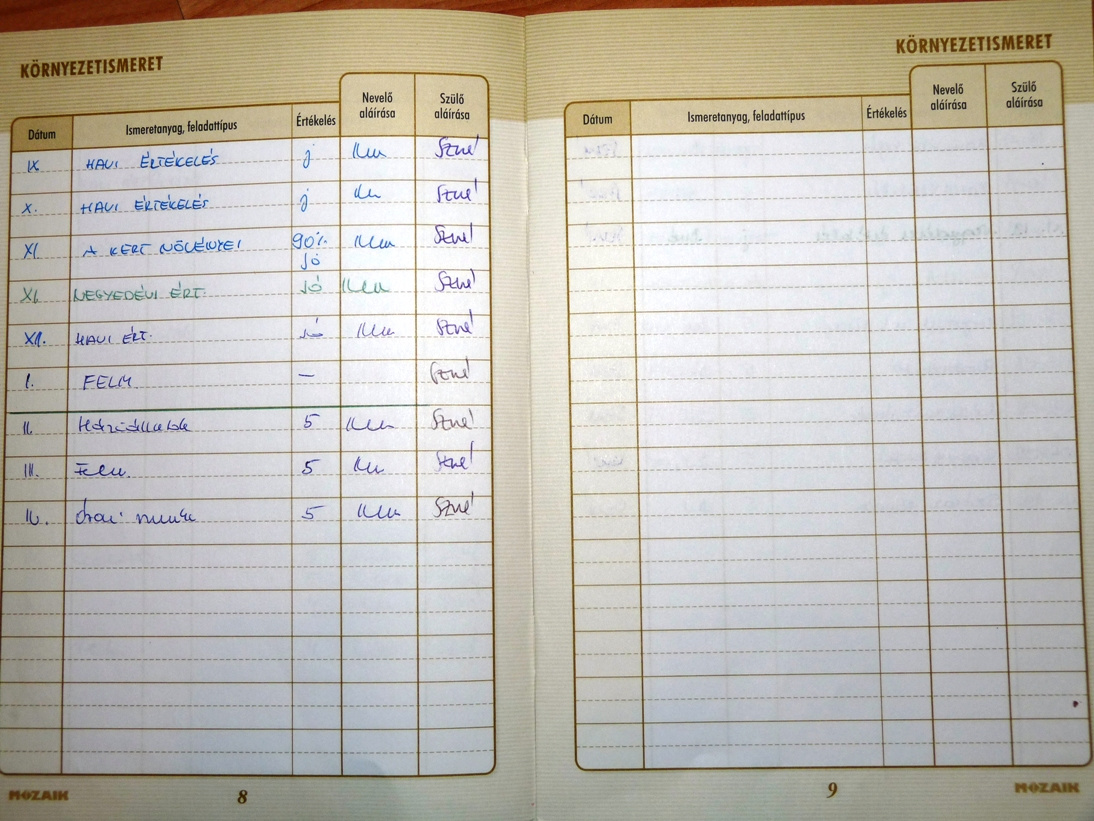 KÖRNYEZETISMERET
Dátum Ismeretanyag, feladattípus Értékelés Nevelő aláírása Szülő aláírása
IX HAVI ÉRTÉKELÉS j Szné
X. HAVI ÉRTÉKELÉS j Szné
XI. A KERT NÖVÉNYEI 90% Szné
JÓ
XI. NEGYEDÉVI ÉRT. JÓ Szné
XII. HAVI ÉRT. JÓ Szné
I. FELM. — Szné
II. Háziállatok 5 Szné
III. Felm. 5 Szné
IV. Órai munka 5 Szné
MOZAIK 8
KÖRNYEZETISMERET
Dátum Ismeretanyag, feladattípus Értékelés Nevelő aláírása Szülő aláírása
9 MOZAIK